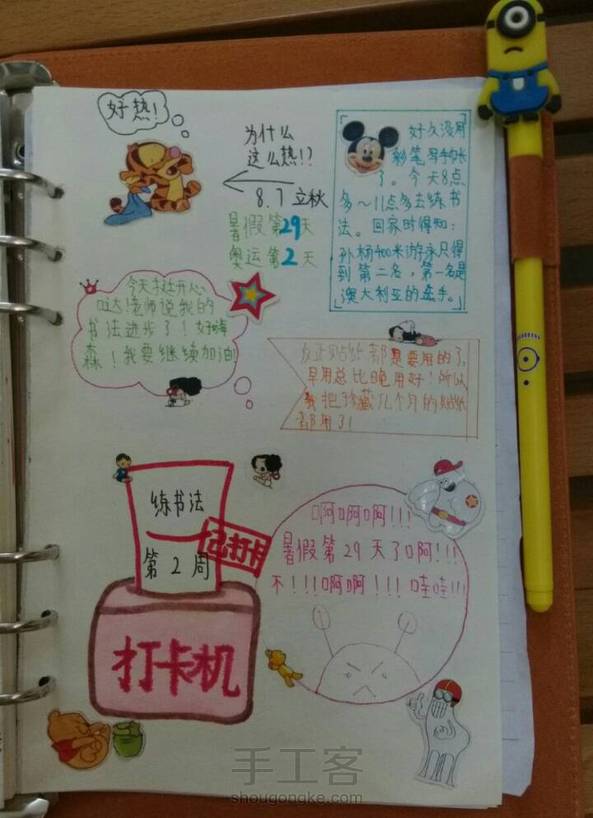 好热!
为什么
这么热!?
8.7 立秋
暑假第29天
奥运第2天
好久没用
彩笔写手帐
了。今天8点
多～11点多去练书
法。回家时得知:
孙杨400米游永只得
到第二名,第一名是
澳大利亚的选手。
今天才让开心
哒!老师说我的
书法进步了!好嗨
森!我要继续加油
反正贴纸都是要用的了,
早用总比晚用好!所以
我把珍藏几个月的贴纸
都用了!
练书法
第2周
已打卡
打卡机
啊啊啊!!!
暑假第29天了啊!!!
不!!!啊啊!!!哇哇!!!
手工客
shougongke.com